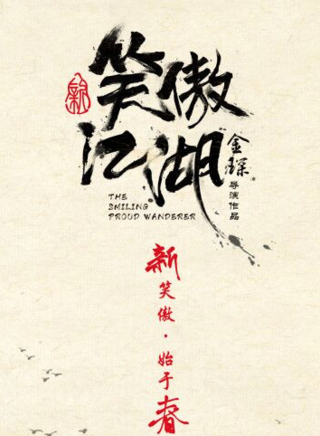 新
笑傲
江湖
金琛
导演作品
THE
SMILING
PROUD WANDERER
新
笑傲·始于
春